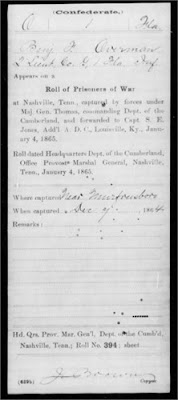 (Confederate.)
Fla.
Benj. F. Overman
2 Lieut, Co. G, 1 Fla. Inf.
Appears on a
Roll of Prisoners of War
at Nashville, Tenn., captured by forces under
Maj. Gen. Thomas, commanding Dept. of the
Cumberland, and forwarded to Capt. S. E.
Jones, Add'l A. D. C., Louisville, Ky., Janu-
ary 4, 1865.
Roll dated Headquarters Dept. of the Cumberland,
Office Provost Marshal General, Nashville,
Tenn., January 4, 1865.
Where captured Near Murfreesboro
When captured Dec 7, 1864
Remarks:
Hd. Qrs. Prov. Mar. Gen'l, Dept. of the Cumb'd,
Nashville, Tenn.; Roll No. 394; sheet
Copyist.